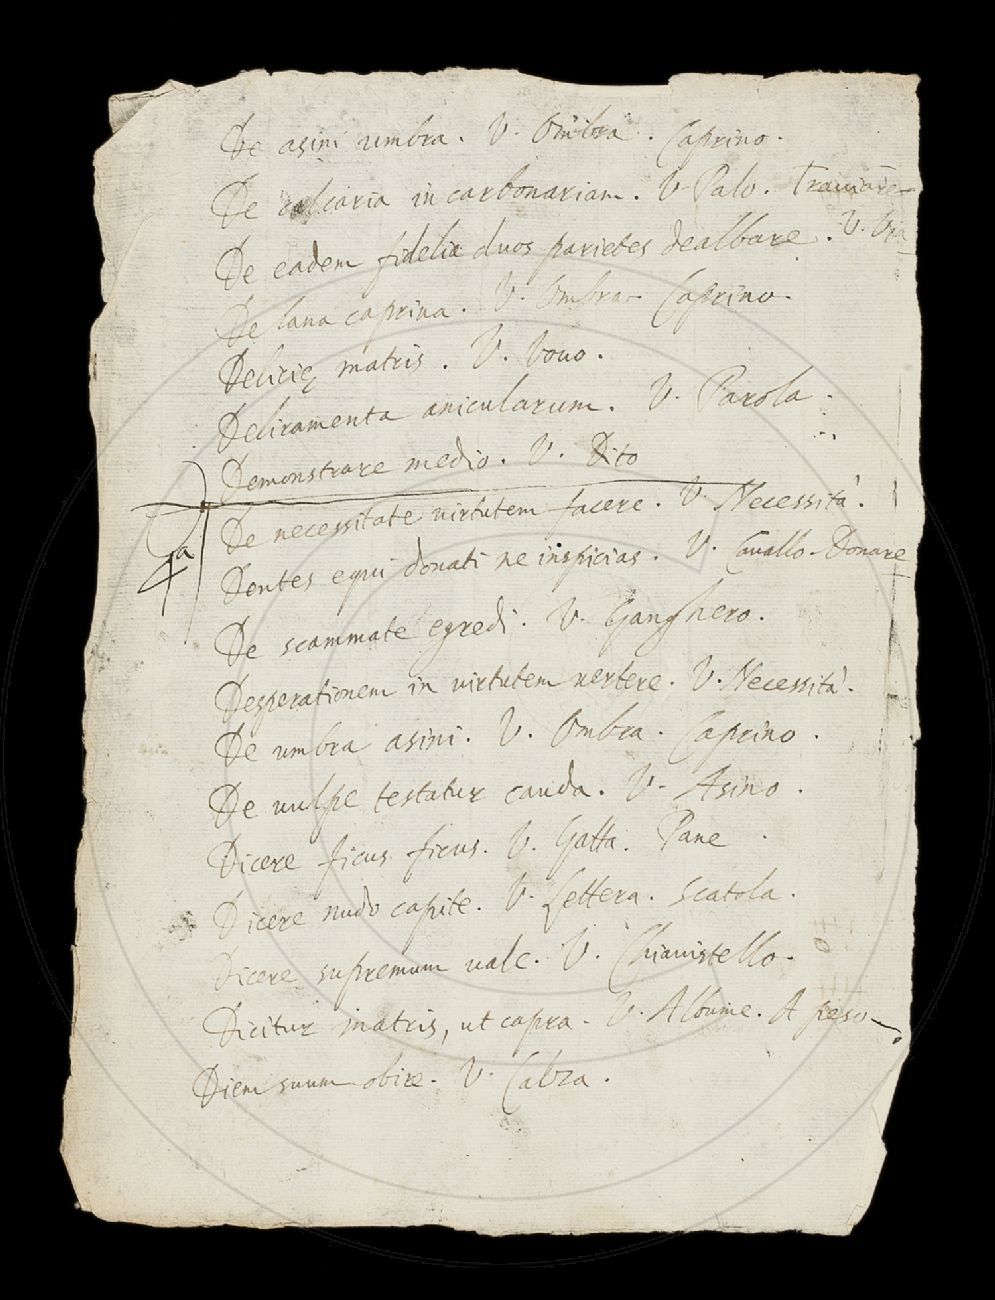 De asini umbra. V. Ombra. Caprino.
De calcaria in carbonariam. V. Palo. Traviare
De eadem fidelia duos parietes dealbare. V. Via
De lana caprina. V. Ombra Caprino.
Delicię matris. V. Vovo.
Deliramenta anicularum. V. Parola.
Demonstrare medio. V. Dito
De necessitate virtutem facere. V. Necessità.
4a
Dentes equi donati ne inspicias. V. Cavallo. Donare
De scammate egredi. V. Ganghero.
Desperationem in virtutem vertere. V. Necessità.
De umbra asini. V. Ombra. Caprino.
De vulpe testatur cauda. V. Asino.
Dicere ficus ficus. V. Gatta. Pane
Dicere nudo capite. V. Lettera. Scatola.
Dicere supremum vale. V. Chiavistello.
Dicitur matris, ut capra. V. Albume. A peso
Diem suum obire. V. Cabra.